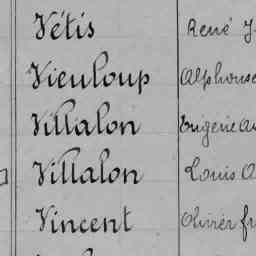 Vétis René J
Vieuloup Alphonse
Villalon Eugénie Au
Villalon Louis
Vincent Olivier fr